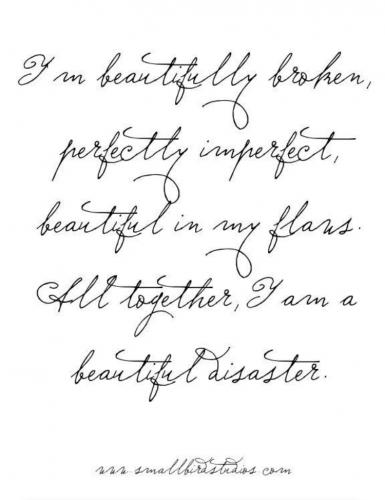 I'm beautifully broken,
perfectly imperfect,
beautiful in my flaws.
All together, I am a
beautiful disaster.
www.smallbirdstudios.com